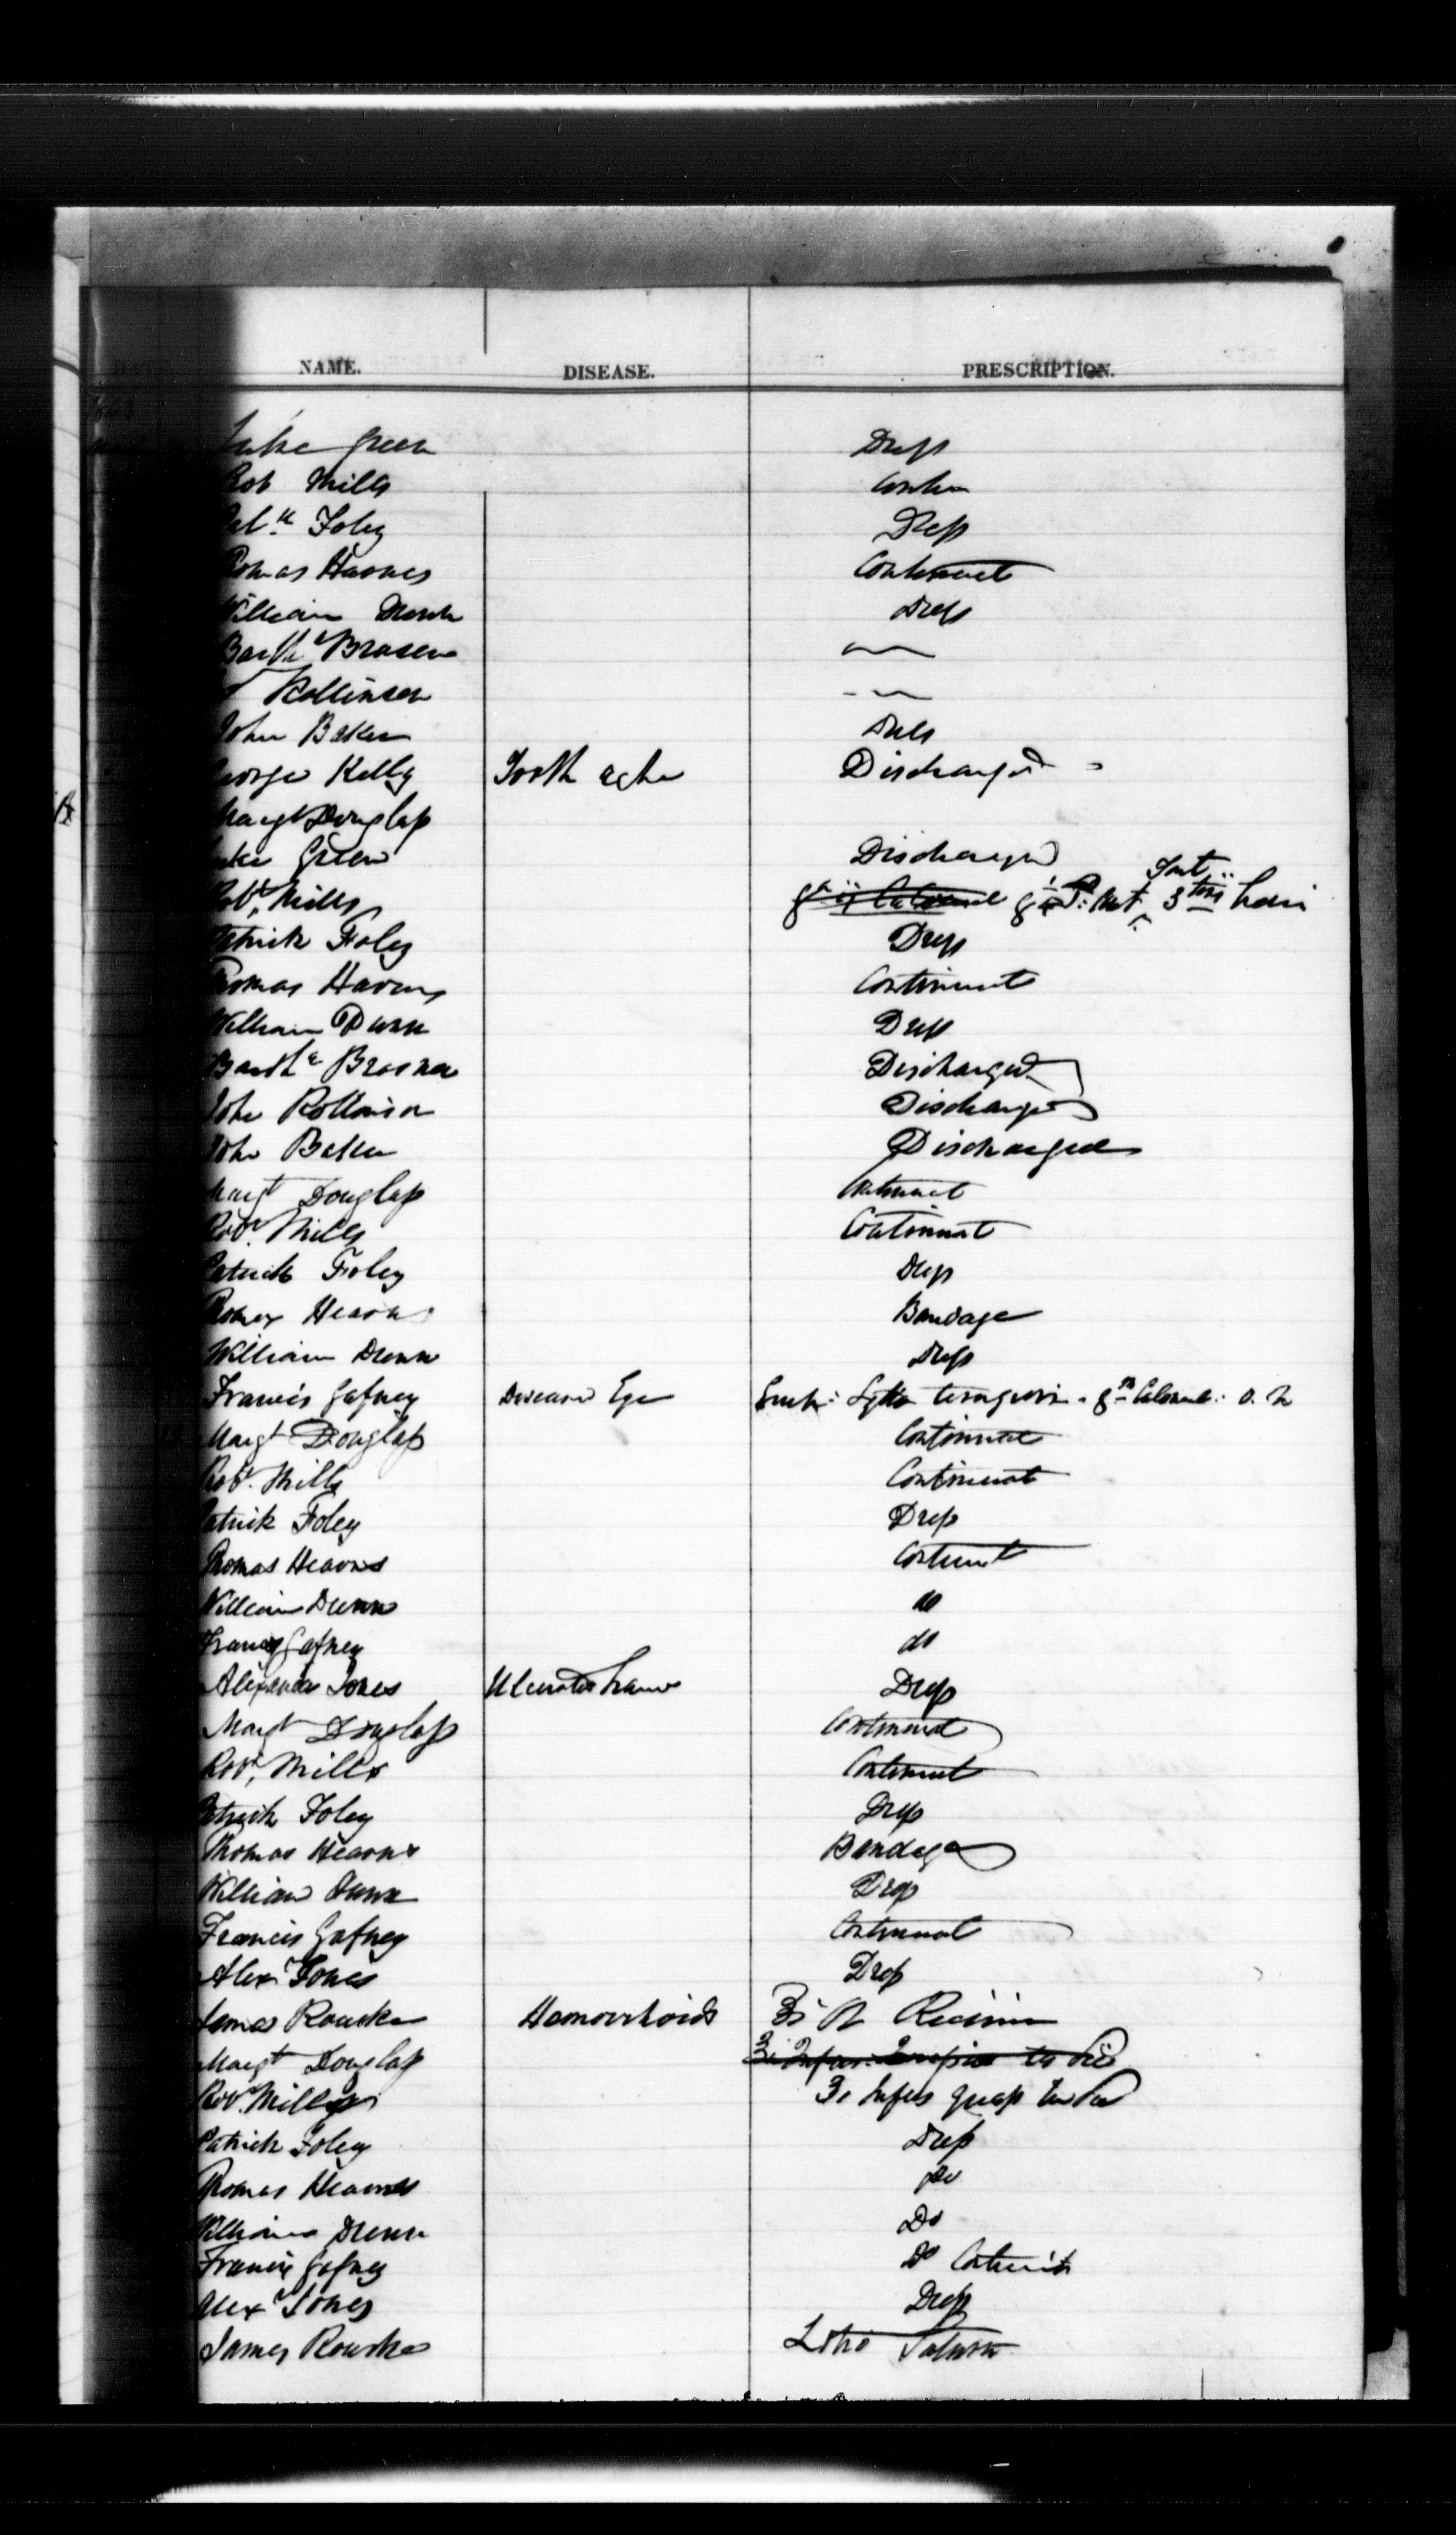 DATE. NAME. DISEASE. PRESCRIPTION.
Luke Green Dress
Rob Mills Contin
Foley Dress
Thomas Hearnes Continuat
William Dress
Barth Brasen
Rollinson
John Baker Dress
George Kelly Tooth ache Discharged
Margt Douglass
Luke Green Discharged
Robt, Mills
Patrick Foley Dress
Thomas Hearns Continuat
William Dunn Dress
Barth Brosna Discharged
John Rollinson Discharged
John Baker Discharged
Margt Douglass Continuat
Robt. Mills Continuat
Patrick Foley Dress
Thomas Hearns Bandage
William Dunn Dress
Francis Gafney Diseased Eye
Margt Douglass Continuat
Robt. Mills Continuat
Patrick Foley Dress
Thomas Hearns Continuat
William Dunn do
Francis Gafney do
Alexander Jones Ulcerated Dress
Margt Douglass Continuat
Robt, Mills Continuat
Patrick Foley Dress
Thomas Hearns Bandage
William Dunn Dress
Francis Gafney Continuat
Alex Jones Dress
James Rourke Hemorrhoids ℥i Ol Ricini
Margt Douglass
Robt. Mills ℥i Infus Quass
Patrick Foley Dress
Thomas Hearns Do
William Dunn Do
Francis Gafney Do Continuat
Alex Jones Dress
James Rourke Lotio Saturn